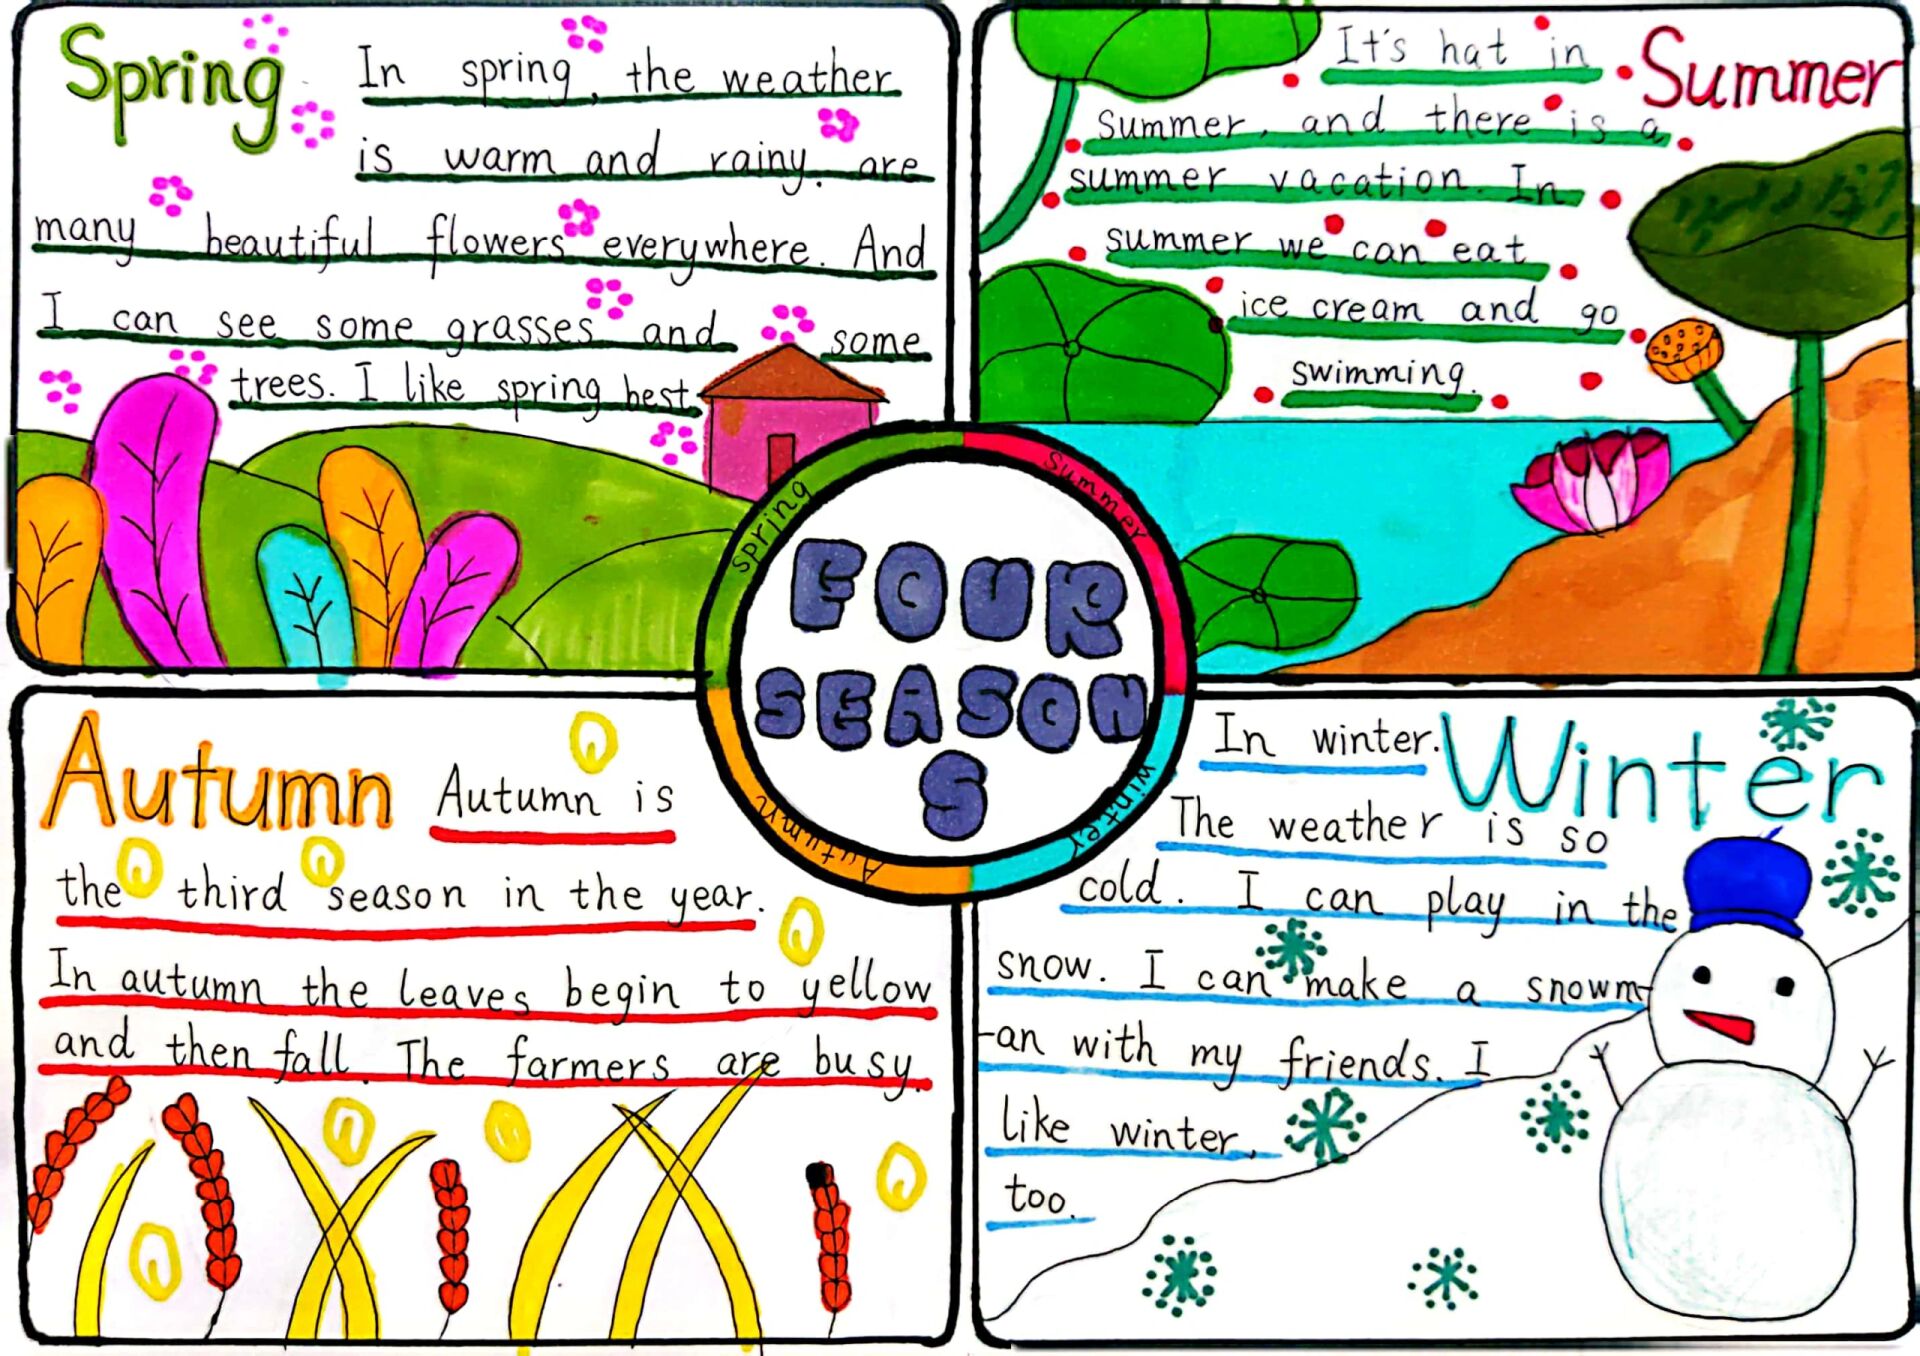 Spring
In spring, the weather
is warm and rainy. are
many beautiful flowers everywhere. And
I can see some grasses and some
trees. I like spring best
Summer
It's hat in
summer, and there is a
summer vacation. In
summer we can eat
ice cream and go
swimming.
spring
summer
FOUR
SEASON
S
Autumn
winter
Autumn
Autumn is
the third season in the year.
In autumn the leaves begin to yellow
and then fall. The farmers are busy.
Winter
In winter.
The weather is so
cold. I can play in the
snow. I can make a snowm-
-an with my friends. I
like winter,
too.